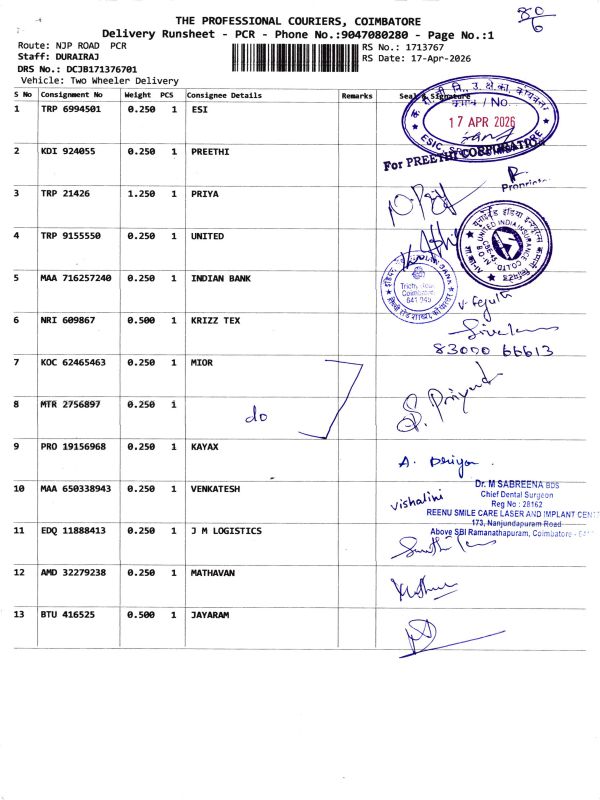 THE PROFESSIONAL COURIERS, COIMBATORE
Delivery Runsheet - PCR - Phone No.:9047080280 - Page No.:1
80/6
Route: NJP ROAD PCR
RS No.: 1713767
Staff: DURAIRAJ
RS Date: 17-Apr-2026
DRS No.: DCJB171376701
Vehicle: Two Wheeler Delivery
S No Consignment No Weight PCS Consignee Details Remarks Seal & Signature
1 TRP 6994501 0.250 1 ESI
No.
17 APR 2026
2 KDI 924055 0.250 1 PREETHI
For PREETHI CORPORATION
3 TRP 21426 1.250 1 PRIYA
4 TRP 9155550 0.250 1 UNITED
UNITED INDIA INSURANCE CO LTD
5 MAA 716257240 0.250 1 INDIAN BANK
Coimbatore
641 045
6 NRI 609867 0.500 1 KRIZZ TEX
83000 66613
7 KOC 62465463 0.250 1 MIOR
8 MTR 2756897 0.250 1
do
9 PRO 19156968 0.250 1 KAYAX
10 MAA 650338943 0.250 1 VENKATESH
vishalini
Dr. M SABREENA BDS
Chief Dental Surgeon
Reg No : 28162
REENU SMILE CARE LASER AND IMPLANT CENT
173, Nanjundapuram Road
Above SBI Ramanathapuram, Coimbatore - 641
11 EDQ 11888413 0.250 1 J M LOGISTICS
12 AMD 32279238 0.250 1 MATHAVAN
13 BTU 416525 0.500 1 JAYARAM